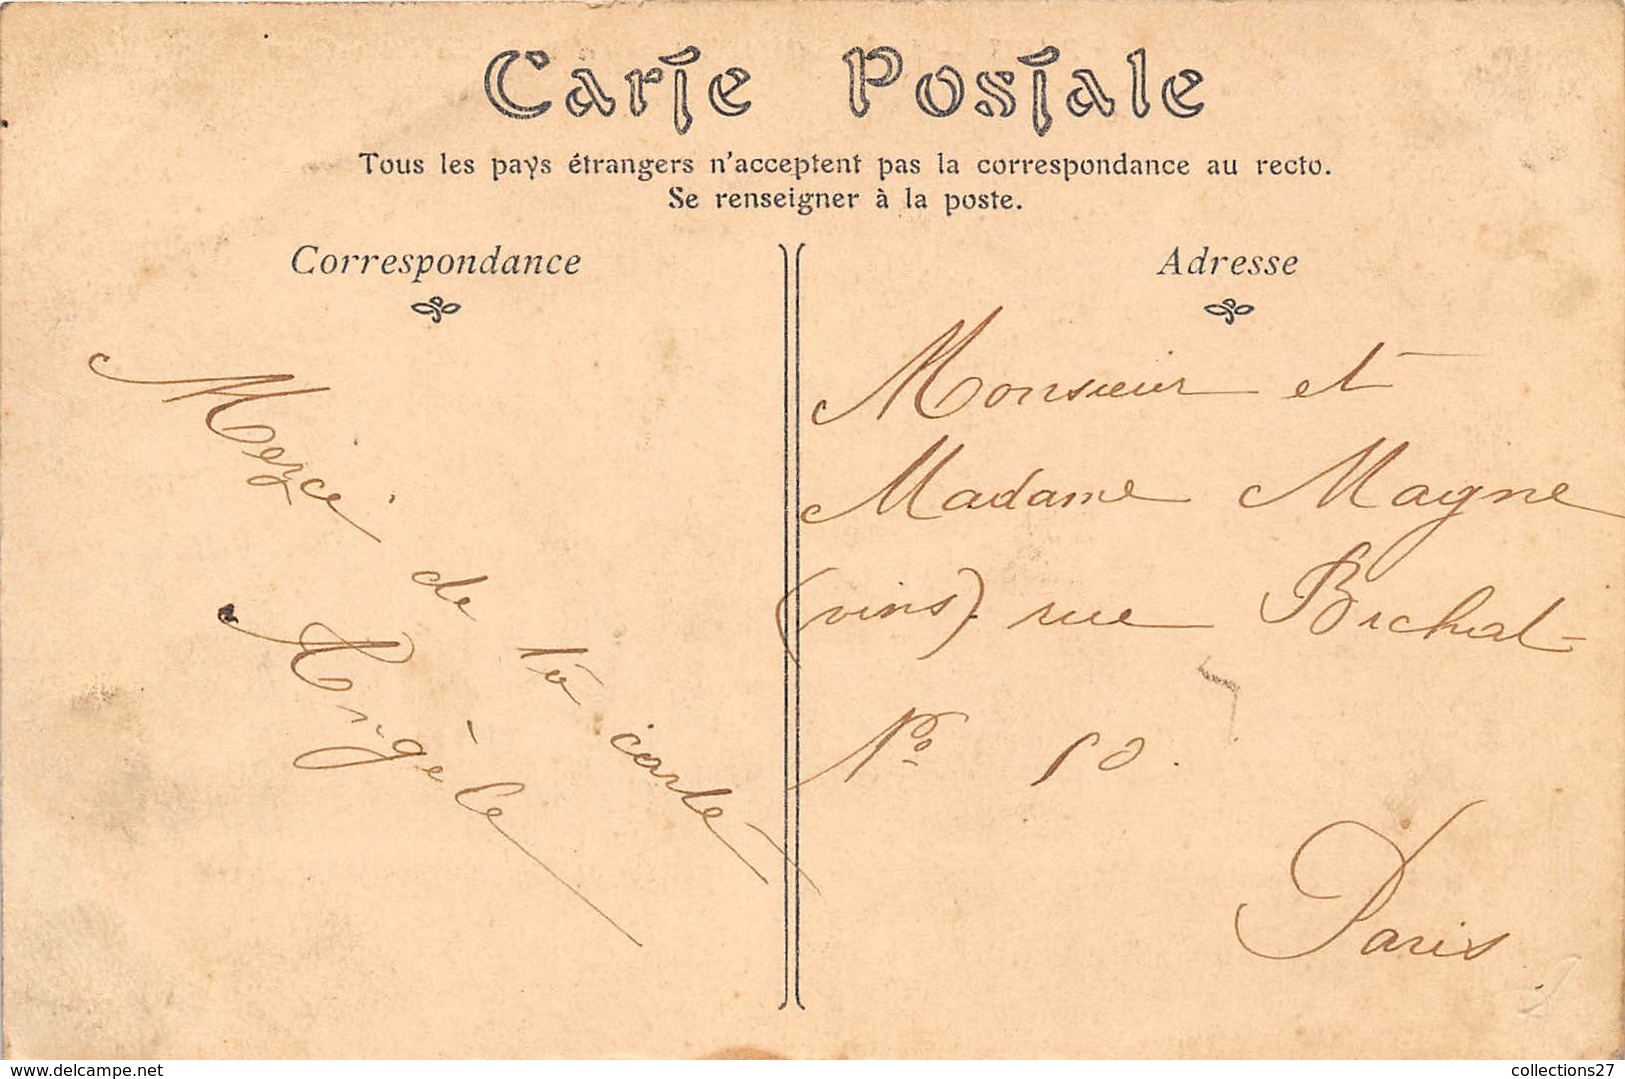 Carte Postale
Tous les pays étrangers n'acceptent pas la correspondance au recto.
Se renseigner à la poste.
Correspondance
Adresse
Merci de ta carte
Angèle
Monsieur et
Madame Magne
(vins). rue Bichat
No 50.
Paris
delcampe.net
collections27